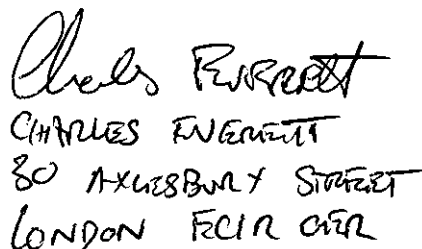 Charles Everett
CHARLES EVERETT
80 AYLESBURY STREET
LONDON EC1R